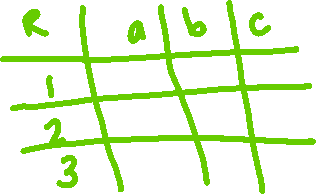 R a b c
1
2
3